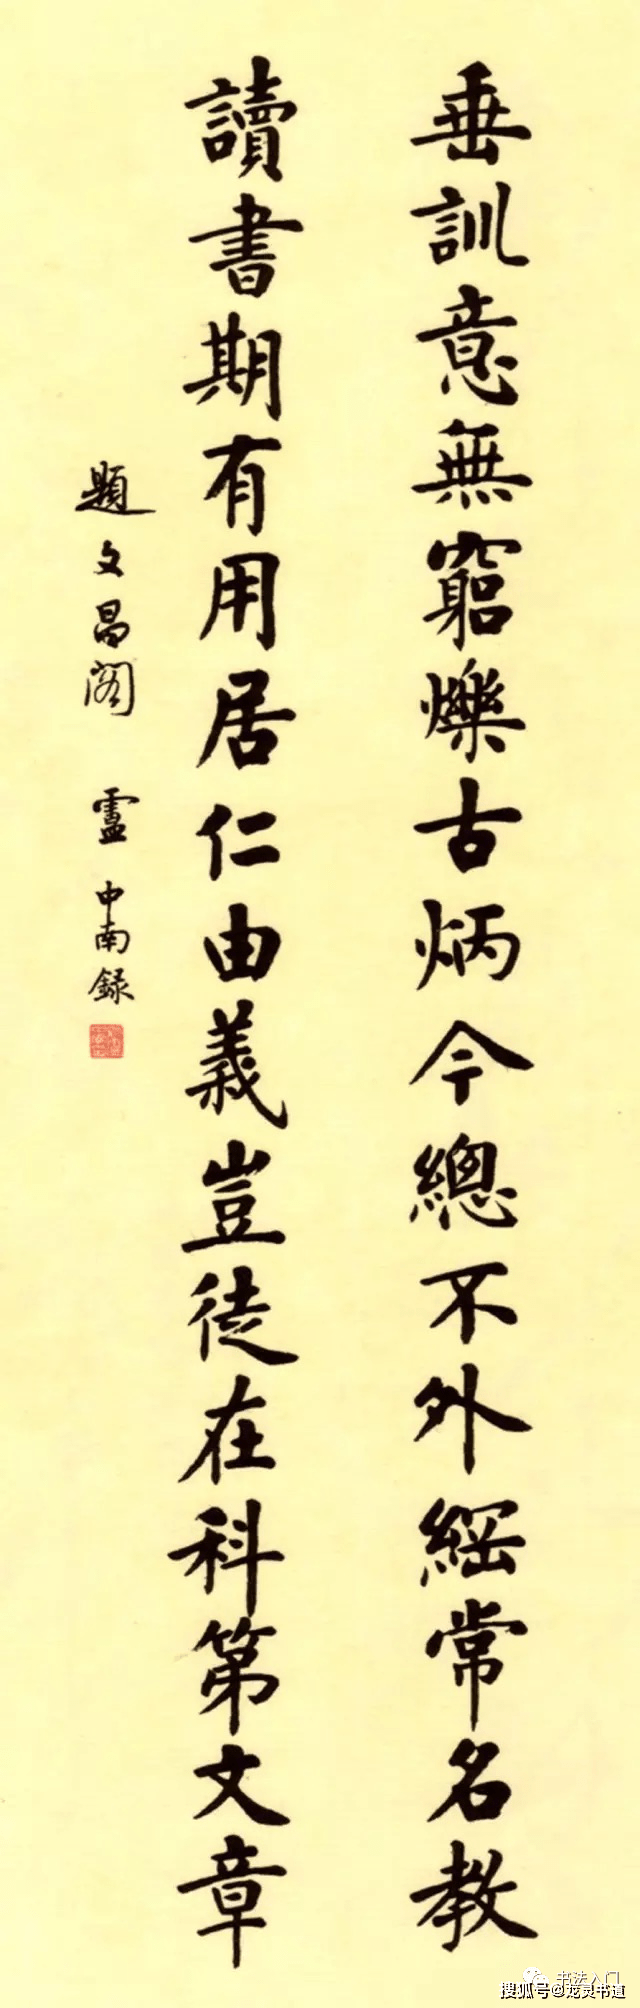 垂訓意無窮爍古炳今總不外綱常名教
讀書期有用居仁由義豈徒在科第文章
題文昌閣 盧中南録
书法入门
搜狐号@龙灵书道